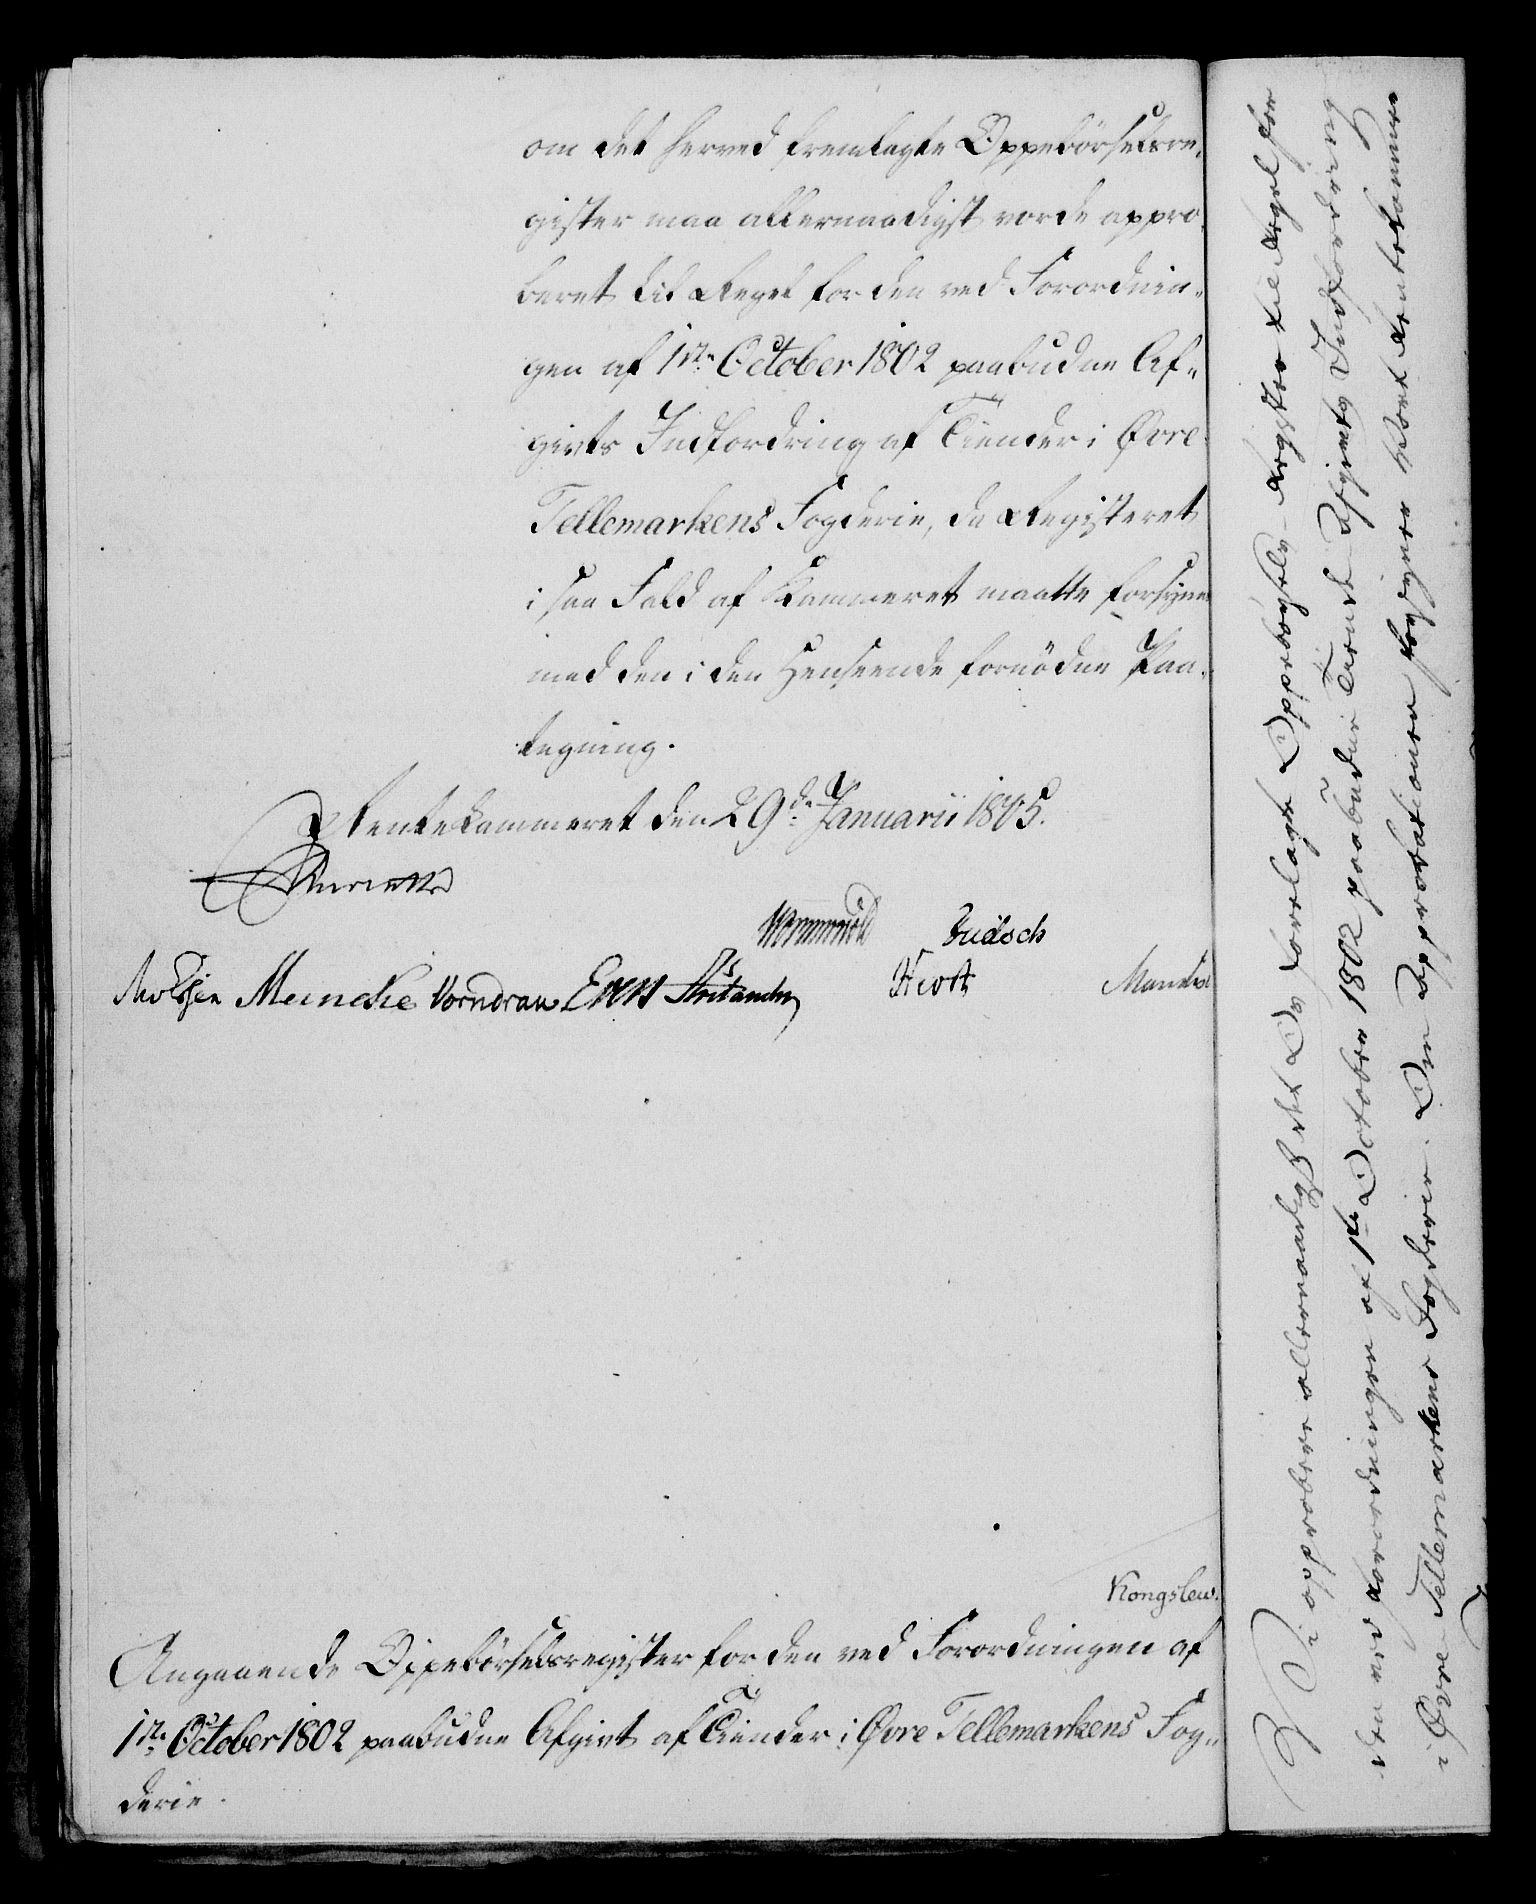 om det herved fremlagte Oppebörselsre-
gister maa allernaadigst vorde appro-
beret til Regel for den ved Forordnin-
gen af 1ste October 1802 paabudne Af-
givts Indfordring af Tiender i Øvre
Tellemarkens Fogderie, da Registeret
i saa Fald af Kammeret maatte forsynes
med den i den Henseende fornödne Paa-
tegning.
Rentekammeret den 29de Januarii 1805.
Wormskiold Judsch
Meincke Vorndran
Kongslew.
Angaaende Oppebörselsregister for den ved Forordningen af
1ste October 1802 paabudne Afgivt af Tiender i Øvre Tellemarkens Fog-
derie.
Vi approbere allernaadigst det Os forelagte Oppebørsels-Register til Regel for
den ved Forordningen af 1ste October 1802 paabudne Tiende Afgivts Indfordring
i Øvre Tellemarkens Fogderie. Den Approbationen forsyner Vort Rentekammer